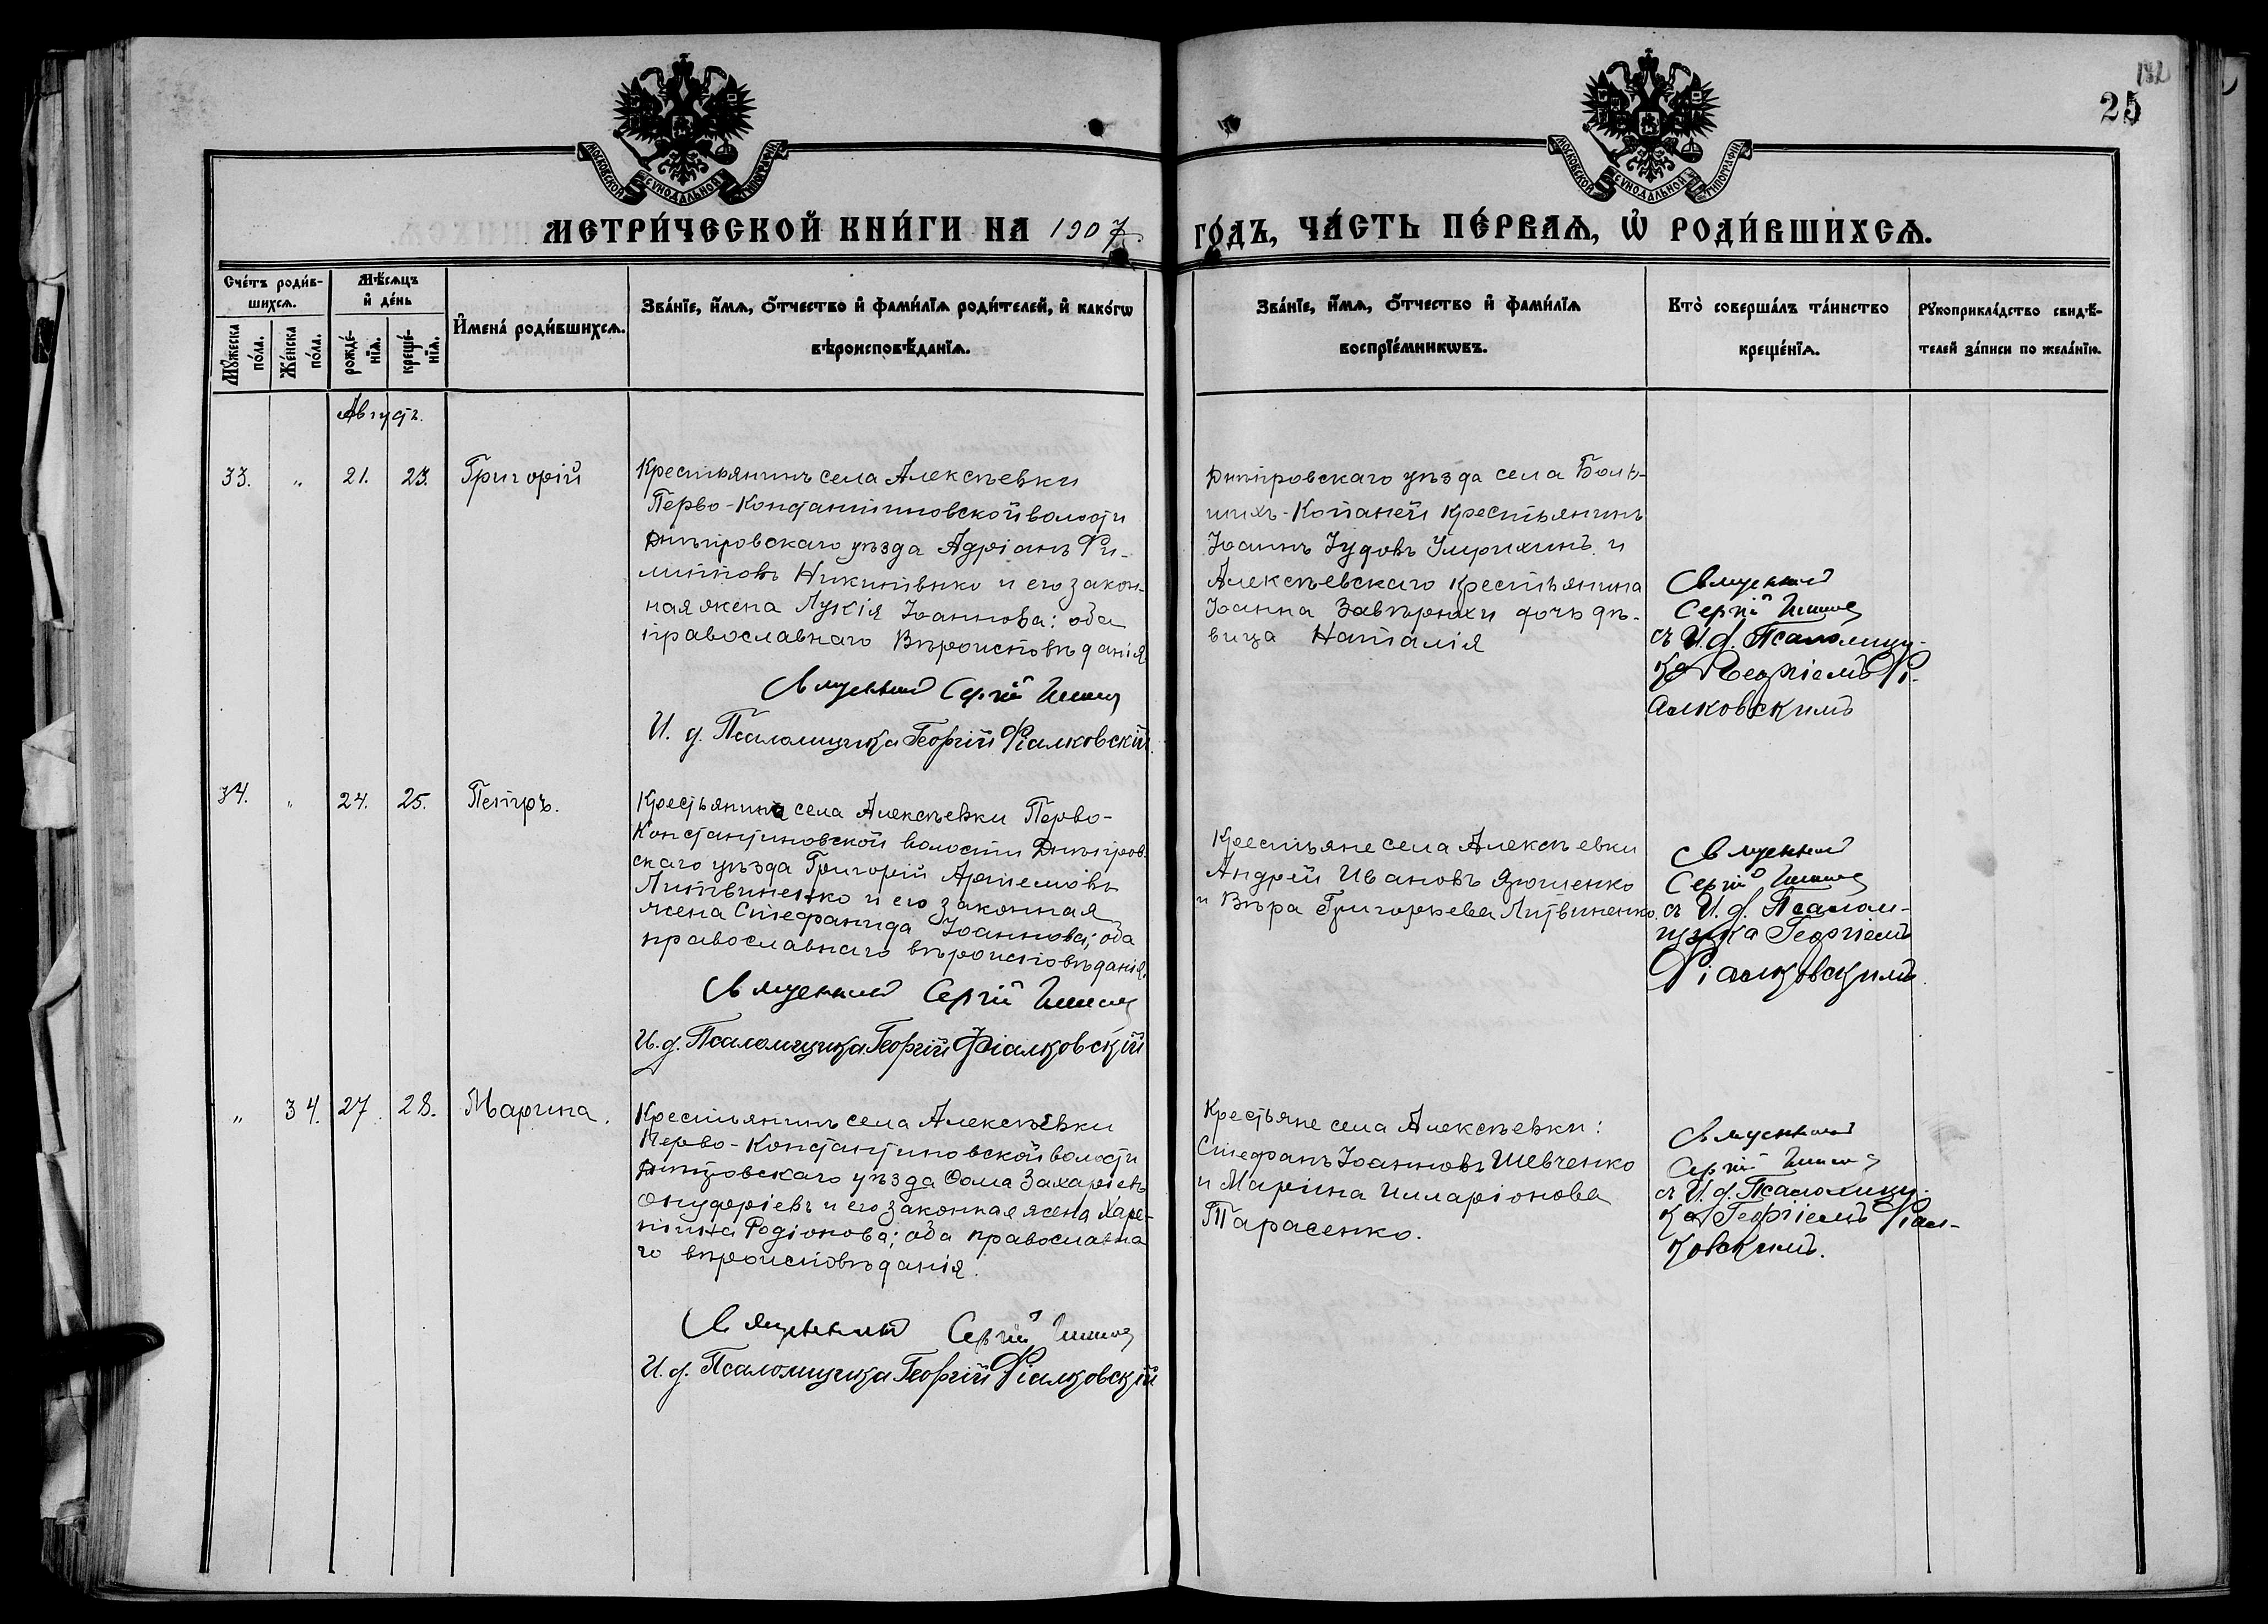 182
25
МОСКОВСКОЙ СѴНОДАЛЬНОЙ ТИПОГРАФІИ
МОСКОВСКОЙ СѴНОДАЛЬНОЙ ТИПОГРАФІИ
МЕТРИ́ЧЕСКОЙ КНИ́ГИ НА 1907
ГО́ДЪ, ЧА́СТЬ ПЕ́РВАѦ, Ѡ҆ РОДИ́ВШИХСѦ.
Сче́тъ роди́в-
шихсѧ.
Мꙋ́жеска по́ла.
Же́нска по́ла.
Мѣ́сѧцъ
и҆ де́нь
рожде́-
нїѧ.
креще́-
нїѧ.
И҆мена̀ роди́вшихсѧ.
Зва́нїе, и҆́мѧ, ѻ҆́тчество и҆ фами́лїѧ роди́телей, и҆ како́гѡ
вѣроисповѣ́данїѧ.
Зва́нїе, и҆́мѧ, ѻ҆́тчество и҆ фами́лїѧ
воспрїе́мникѡвъ.
Кто̀ соверша́лъ та́инство
креще́нїѧ.
Рꙋкоприкла́дство свидѣ́-
телей за́писи по жела́нїю.
Августъ.
33.
"
21.
23.
Григорій
Крестьянинъ села Алексѣевки
Перво-Константиновской волости
Днѣпровскаго уѣзда Адріанъ Фи-
липповъ Никитенко и его закон-
ная жена Лукія Іоаннова: оба
православнаго Вѣроисповѣданія
Священникъ Сергій
И. д. Псаломщика Георгій Фіалковскій.
Днѣпровскаго уѣзда села Боль-
шихъ-Копаней крестьянинъ
Іоаннъ Іудовъ и
Алексѣевскаго крестьянина
Іоанна Завѣрюхи дочь дѣ-
вица Наталія
Священникъ
Сергій
съ И. д. Псаломщи-
ка Георгіемъ Фі-
алковскимъ
34.
"
24.
25.
Петръ.
Крестьянинъ села Алексѣевки Перво-
Константиновской волости Днѣпров-
скаго уѣзда Григорій Артемовъ
Литвиненко и его законная
жена Стефанида Іоаннова; оба
православнаго вѣроисповѣданія.
Священникъ Сергій
И. д. Псаломщика Георгій Фіалковскій
Крестьяне села Алексѣевки
Андрей Ивановъ
и Вѣра Григорьева Литвиненко.
Священникъ
Сергій
съ И. д. Псалом-
щика Георгіемъ
Фіалковскимъ.
"
34.
27.
28.
Марина.
Крестьянинъ села Алексѣевки
Перво-Константиновской волости
Днѣпровскаго уѣзда Ѳома Захаріевъ
Онуфріевъ и его законная жена Харе-
тина Родіонова; оба православна
го вѣроисповѣданія.
Священникъ Сергій
И. д. Псаломщика Георгій Фіалковскій
Крестьяне села Алексѣевки:
Стефанъ Іоанновъ Шевченко
и Марина Илларіонова
Тарасенко.
Священникъ
Сергій
съ И. д. Псаломщи-
ка Георгіемъ Фіал-
ковскимъ.